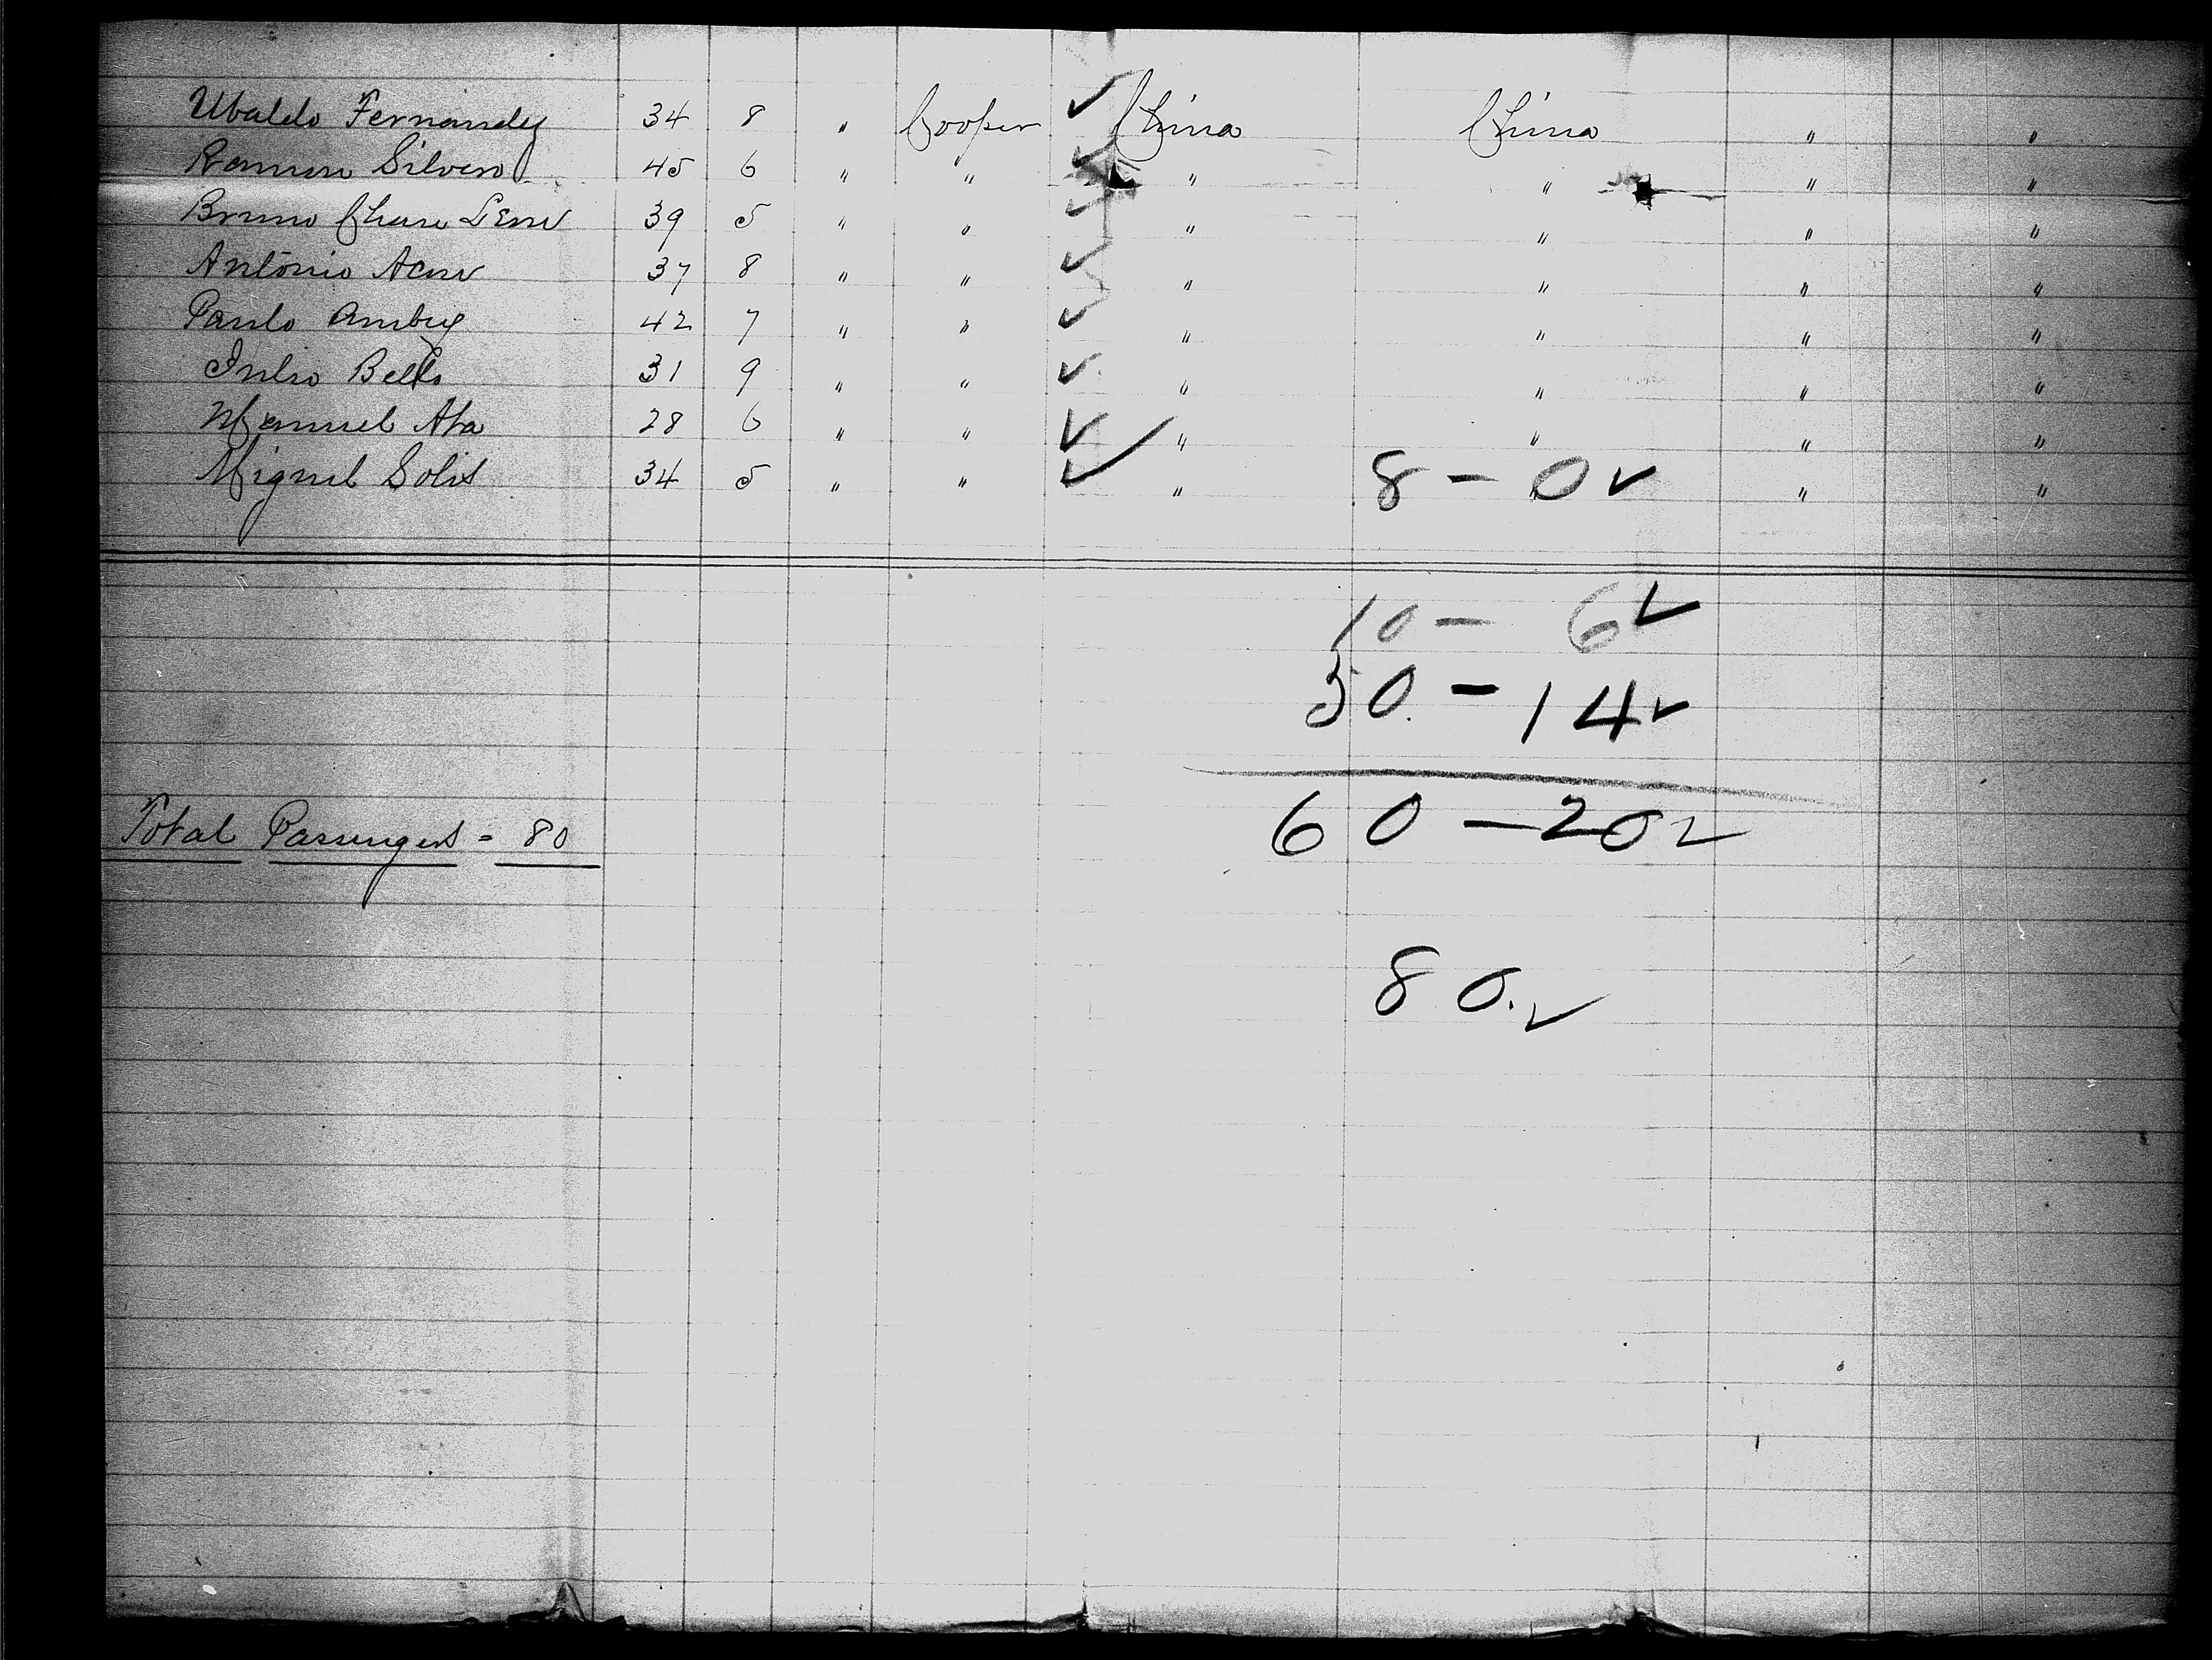 Ubaldo Fernandez 34 8 " Cooper ✓ China China " "
Ramon Silvero 45 6 " " ✓ " " " "
Bruno Chan 39 5 " " ✓ " " " "
António 37 8 " " ✓ " " " "
Paulo 42 7 " " ✓ " " " "
Julio Bello 31 9 " " ✓ " " " "
Manuel Ata 28 6 " " ✓ " " " "
Miguel Solis 34 5 " " ✓ " 8 - 0 ✓ " " "
10 - 6 ✓
50 - 14 ✓
60 - 20 ✓
Total Passengers = 80
80. ✓